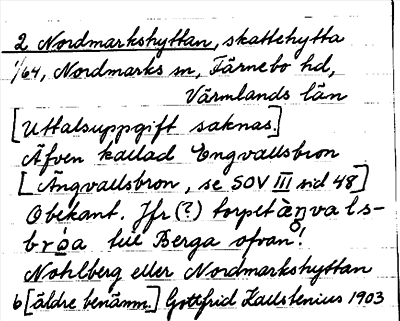 2 Nordmarkshyttan, skattehytta
1/64, Nordmarks sn, Färnebo hd,
Värmlands län
[Uttalsuppgift saknas.]
Äfven kallad Engvallsbron
[Ängvallsbron, se SOV III sid 48]
Obekant. Jfr (?) torplt àŋvals-
bróa till Berga ofvan!
Nohlberg eller Nordmarkshyttan
b [äldre benämn.] Gottfrid Kallstenius 1903